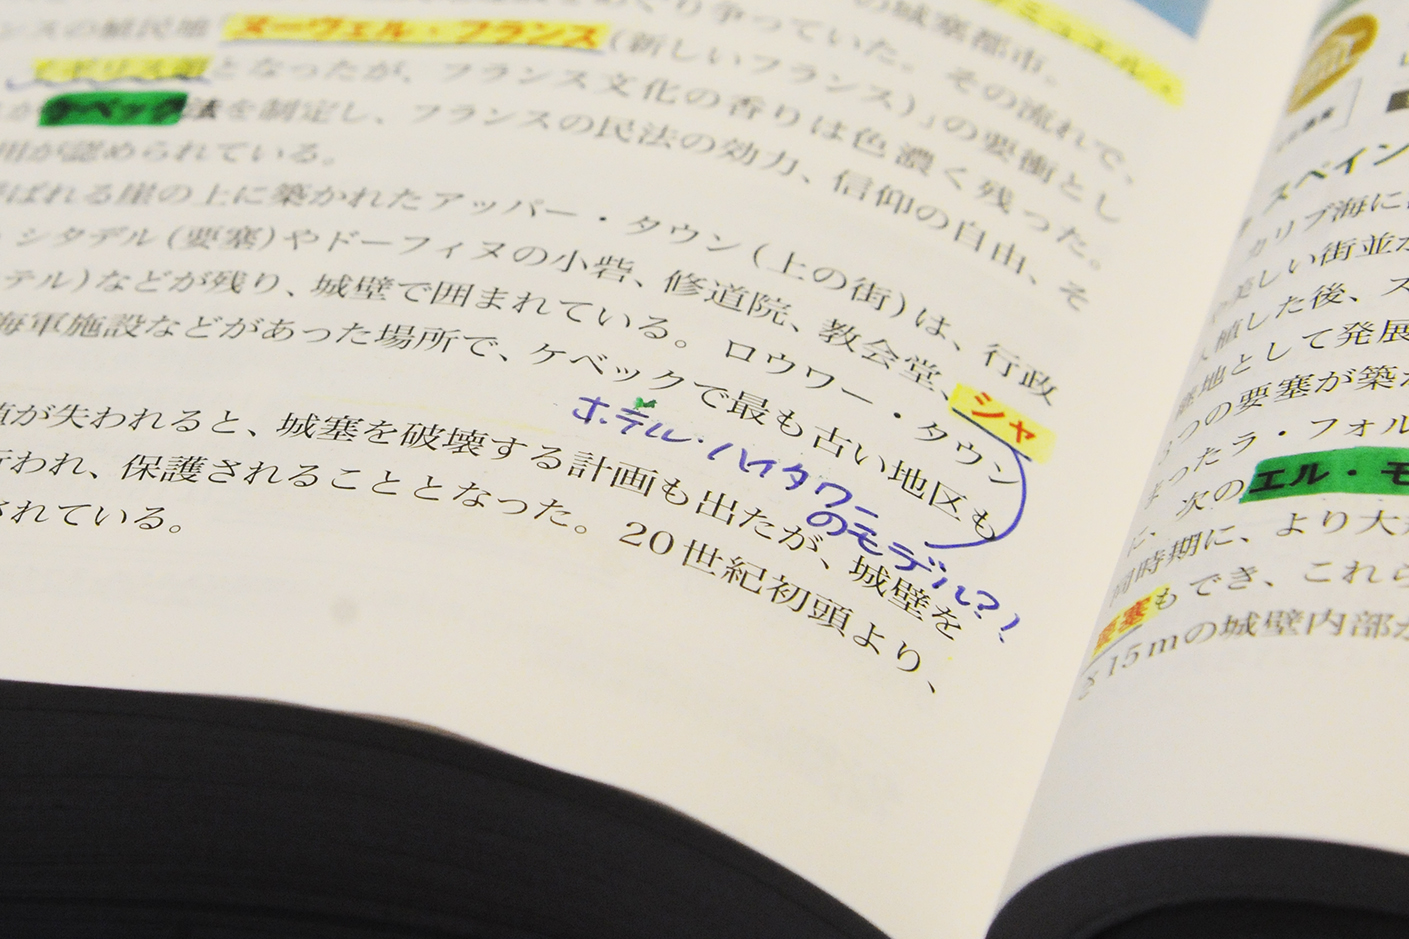 の城塞都市。
サミュエル・
ンスの植民地「ヌーヴェル・フランス(新しいフランス)」の要衝とし
り争っていた。その流れで、
イギリス領となったが、フランス文化の香りは色濃く残った。
ケベック法を制定し、フランスの民法の効力、信仰の自由、そ
用が認められている。
ばれる崖の上に築かれたアッパー・タウン(上の街)は、行政
、シタデル(要塞)やドーフィヌの小砦、修道院、教会堂、シャ
テル)などが残り、城壁で囲まれている。ロウワー・タウン
海軍施設などがあった場所で、ケベックで最も古い地区も
ホテル・ハイタワー
のモデル?!
値が失われると、城塞を破壊する計画も出たが、城壁を
行われ、保護されることとなった。20世紀初頭より、
されている。
スペイン
カリブ海に
美しい街並
入植した後、ス
継地として発展
3つの要塞が築
まったラ・フォル
に、次のエル・モ
同時期に、より大
要塞もでき、これら
さ15mの城壁内部が